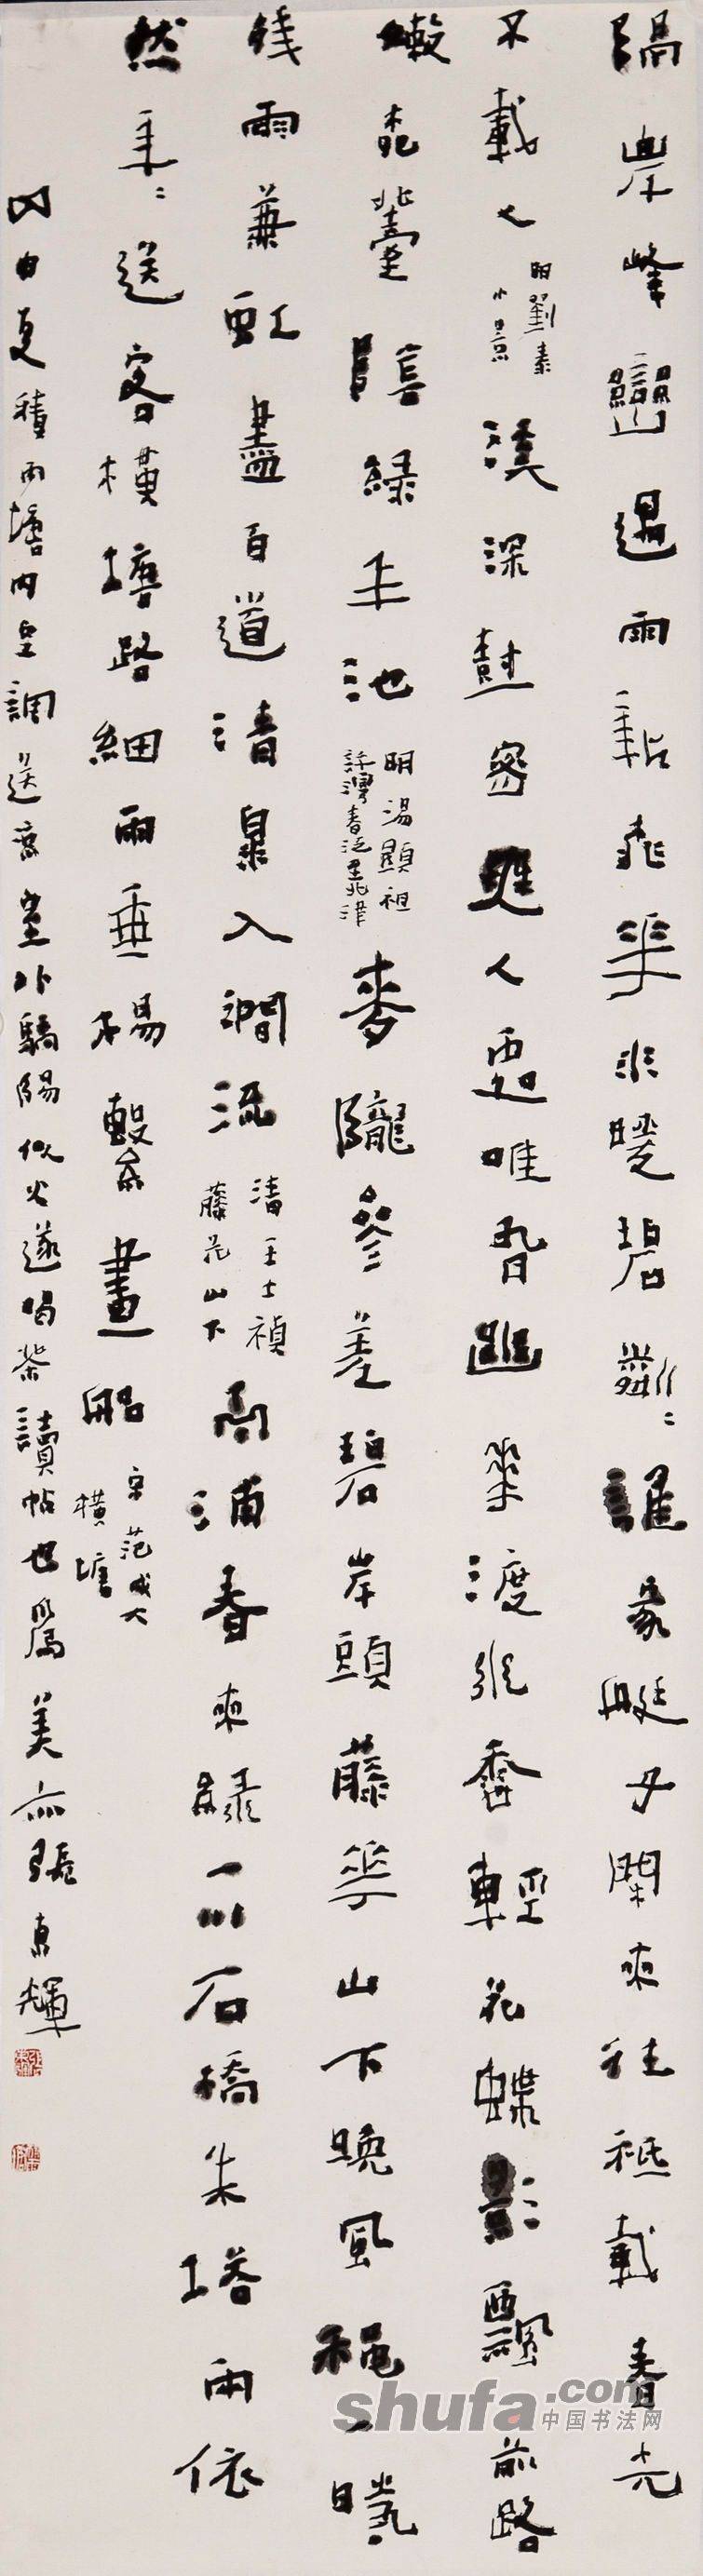 隔岸峰巒過雨新桃花飛暖碧粼〻誰家艇子閑來往秖載春光
不載人
明劉泰
小景
溪深樹密無人處唯有幽花渡水香輕花蝶影飄前路
嫩柳苔陰綠半池
明湯顯祖
許灣春泛至北津
麥隴參差碧岸頭藤花山下晚風龝一時
殘雨兼虹盡百道清泉入澗流
清王士禎
藤花山下
南浦春來綠一川石橋朱塔兩依
然年〻送客橫塘路細雨垂楊繫畫船
宋范成大
橫塘
丙申夏積雨塘內空調送爽室外驕陽似火遂喝茶讀帖也屬美亦張東輝
shufa.com
中国书法网